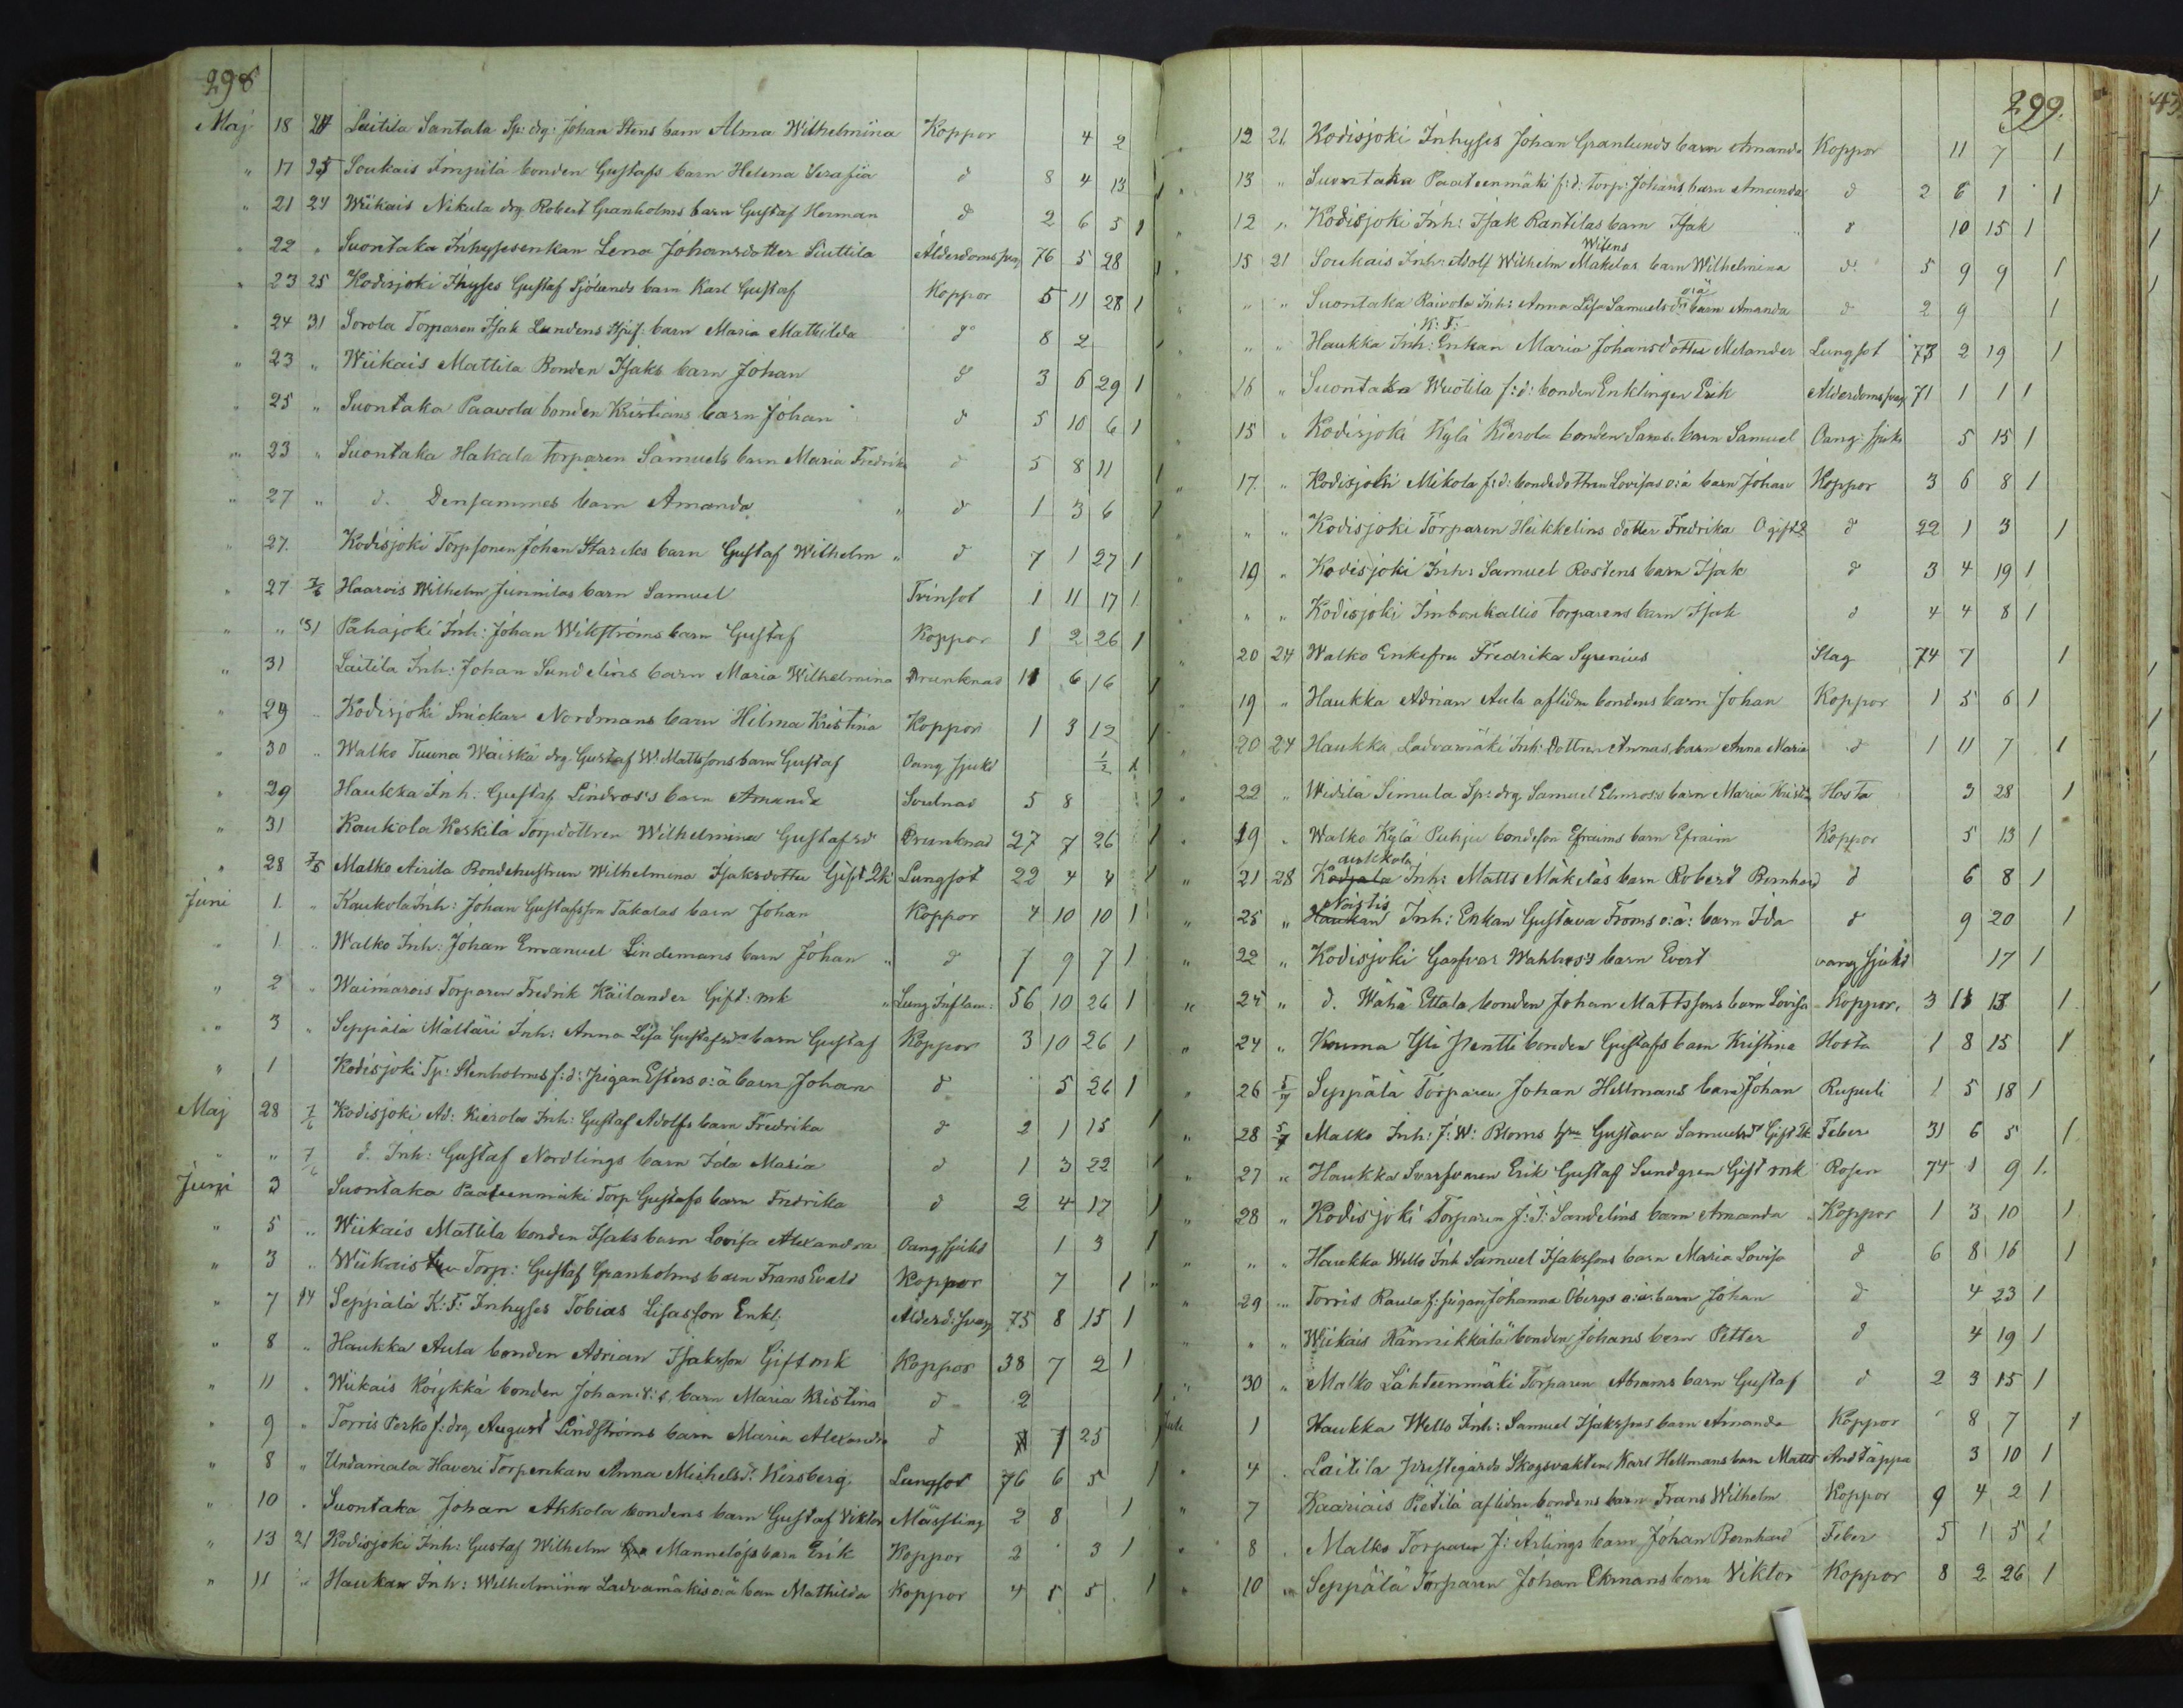 298
Maj 18 24 Laitila Santala Sp: drg: Johan Stens barn Alma Wilhelmina Koppor 4 2
" 17 25 Soukais Impilä bonden Gustafs barn Helena Serafia d 8 4 13 1
" 21 24 Wiikais Nikula drg Robert Granholms barn Gustaf Herman d 2 6 5 1
" 22 " Suontaka Inhysesenkan Lena Johansdotter Siuttila Ålderdomssvag 76 5 28 1
" 23 25 Kodisjoki Ihyses Gustaf Sjölunds barn Karl Gustaf Koppor 5 11 28 1
" 24 31 Sorola Torparen Isak Lundens barn Maria Mathilda d 8 2 1
" 23 " Wiikais Mattila Bonden Isaks barn Johan d 3 6 29 1
" 25 " Suontaka Paavola bonden Kristians barn Johan d 5 10 6 1
" 23 " Suontaka Hakala torparen Samuels barn Maria Fredrika d 5 8 11 1
" 27 " d. Densammes barn Amanda " d 1 3 6 1
" 27. Kodisjoki Torpsonen Johan Starcks barn Gustaf Wilhelm " d 7 1 27 1
" 27 7/6 Haarois Wilhelm Junnilas barn Samuel Tvinsot 1 11 17 1
" " 31 Pahajoki Inh: Johan Wikströms barn Gustaf Koppor 1 2 26 1
" 31 Laitila Inh: Johan Sundelins barn Maria Wilhelmina Drunknad 11 6 16 1
" 29 " Kodisjoki Snickar Nordmans barn Hilma Kristina Koppor 1 3 12 1
" 30 " Walko Tuuna Wäiskä drg Gustaf W. Mattssons barn Gustaf Oang sjukd 1/2 1
" 29 Haukka Inh. Gustaf Lindros's barn Amanda Svulnad 5 8 1
" 31 Kaukola Keskilä Torpdottren Wilhelmina Gustafsd Drunknad 27 7 26 1
" 28 7/6 Malko Airila Bondehustrun Wilhelmina Isaksdotter Gift 2k Lungsot 22 4 4 1
Juni 1. " Kaukola Inh: Johan Gustafsson Takalas barn Johan Koppor 4 10 10 1
" 1 " Walko Inh: Johan Emanuel Lindemans barn Johan " d 1 9 7 1
" 2 " Waimarois Torparen Fredrik Käilander Gift: mk " Lung Inflam: 56 10 26 1
" 3 " Seppälä Mälläri Inh: Anna Lisa Gustafsdr barn Gustaf Koppor 3 10 26 1
" 1 Kodisjoki Tp: Stenholms f:d: pigan Esters o:ä barn Johan d 5 26 1
Maj 28 7/6 Kodisjoki Ad: Kierola Inh: Gustaf Adolfs barn Fredrika d 2 1 15 1
" " 7/6 d. Inh: Gustaf Nordlings barn Ida Maria d 1 3 22 1
Juni 3 Suontaka Paateenmäki Torp Gustafs barn Fredrika d 2 4 17 1
" 5 " Wiikais Mattila bonden Isaks barn Lovisa Alexandra Oang sjukd 1 3 1
" 3 " Wiikais Torp: Gustaf Granholms barn Frans Evald Koppor 7 1
" 7 14 Seppälä K:F: Inhyses Tobias Lisasson Enkl: Ålderd:svag 75 8 15 1
" 8 " Haukka Aula bonden Adrian Isaksson Gift mk Koppor 38 7 2 1
" 11 " Wiikais Köykkä bonden Johans barn Maria Kristina d 2 1
" 9 " Torris Perko f:drg August Lindströms barn Maria Alexandra d 7 25 1
" 8 " Undamala Haveri Torpenkan Anna Michelsd: Kirsberg Lungsot 76 6 5 1
" 10 " Suontaka Johan Akkola bondens barn Gustaf Viktor Mässling 2 8 1
" 13 21 Kodisjoki Inh: Gustaf Wilhelm Mannelöfs barn Erik Koppor 2 3 1
" 11 " Haukan Inh: Wilhelmina Ladvamäkis o:ä barn Mathilda Koppor 4 5 5 1
299.
" 12 21 Kodisjoki Inhyses Johan Granlunds barn Amanda Koppor 11 7 1
" 13 " Suontaka Paateenmäki f:d: torp: Johans barn Amanda d 2 6 1 1
" 12 " Kodisjoki Inh: Isak Rantilas barn Isak d 10 15 1
Witens
" 15 21 Soukais Inh: Adolf Wilhelm Mäkelas barn Wilhelmina d 5 9 9 1
o:ä
" " " Suontaka Raivola Inh: Anna Lisa Samuelsdrs barn Amanda d 2 9 1
K: F:
" " " Haukka Inh: Enkan Maria Johansdotter Melander Lungsot 73 2 19 1
" 16 " Suontaka Wuotila f:d: bonden Enklingen Erik Ålderdomssvag 71 1 1 1
" 15 " Kodisjoki Kylä Kierola bonden Sams. barn Samuel Oang: sjukd 5 15 1
" 17. " Kodisjoki Mikola f:d: bondedottren Lovisas o:ä barn Johan Koppor 3 6 8 1
" " " Kodisjoki Torparen Heikkelins dotter Fredrika Ogift d 22 1 3 1
" 19 " Kodisjoki Inh: Samuel Rostens barn Isak d 3 4 19 1
" " " Kodisjoki Imbonkallio torparens barn Isak d 4 4 8 1
" 20 24 Walko Enkefru Fredrika Syrenius Slag 74 7 1
" 19 " Haukka Adrian Aula aflidne bondens barn Johan Koppor 1 5 6 1
" 20 24 Haukka Ladvamäki Inh: Dottren Annas barn Anna Maria d 1 11 7 1
" 22 " Widilä Simula Sp: drg Samuel Elmros:s barn Maria Kristina Hosta 3 28 1
" 19 " Walko Kylä Puhju bondeson Efraims barn Efraim Koppor 5 13 1
aukkola
" 21 28 Kodjala Inh: Matts Mäkiläs barn Robert Bernhard d 6 8 1
Noistis
" 25 " Haukan Inh: Enkan Gustava Froms o:ä: barn Ida d 9 20 1
" 22 " Kodisjoki Garfvar Wahlros's barn Evert oang sjukd 17 1
" 24 " d. Wähä Ettala bonden Johan Mattssons barn Lovisa Koppor. 3 11 13 1
" 24 " Kouma Yli Pentti bonden Gustafs barn Kristina Hosta 1 8 15 1
" 26 5/7 Seppälä Torparen Johan Hellmans barn Johan Rupuli 1 5 18 1
" 28 5/7 Malko Inh: J: W: Bloms hu Gustava Samuelsdr Gift Feber 31 6 5 1
" 27 " Haukka Svarfvaren Erik Gustaf Sundgren Gift mk Rosen 74 1 9 1.
" 28 " Kodisjoki Torparen J: J: Sandelins barn Amanda Koppor 1 3 10 1
" " " Haukka Wello Inh Samuel Isakssons barn Maria Lovisa d 6 8 16 1
" 29 " Torris Raula f: pigan Johanna Öbergs o:ä: barn Johan d 4 23 1
" " " Wiikais Hännikkälä bonden Johans barn Petter d 4 19 1
" 30 " Malko Lähteenmäki Torparen Abrams barn Gustaf d 2 3 15 1
Juli 1 Haukka Wello Inh: Samuel Isakssons barn Amanda Koppor 8 7 1
" 4 . Laitila prestegårds Skogsvakten Karl Hellmans barn Matts Andtäppa 3 10 1
" 7 Kaariais Pietilä aflidne bondens barn Frans Wilhelm Koppor 9 4 2 1
" 8 . Malko Torparen J: Ärlings barn Johan Bernhard Feber 5 1 5 1
" 10 " Seppälä Torparen Johan Ekmans barn Viktor Koppor 8 2 26 1